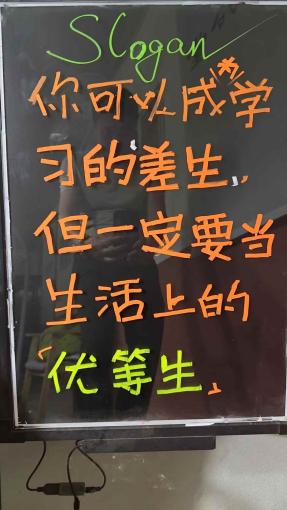 Slogan
你可以成学
习的差生,,
但一定要当
生活上的
「优等生」